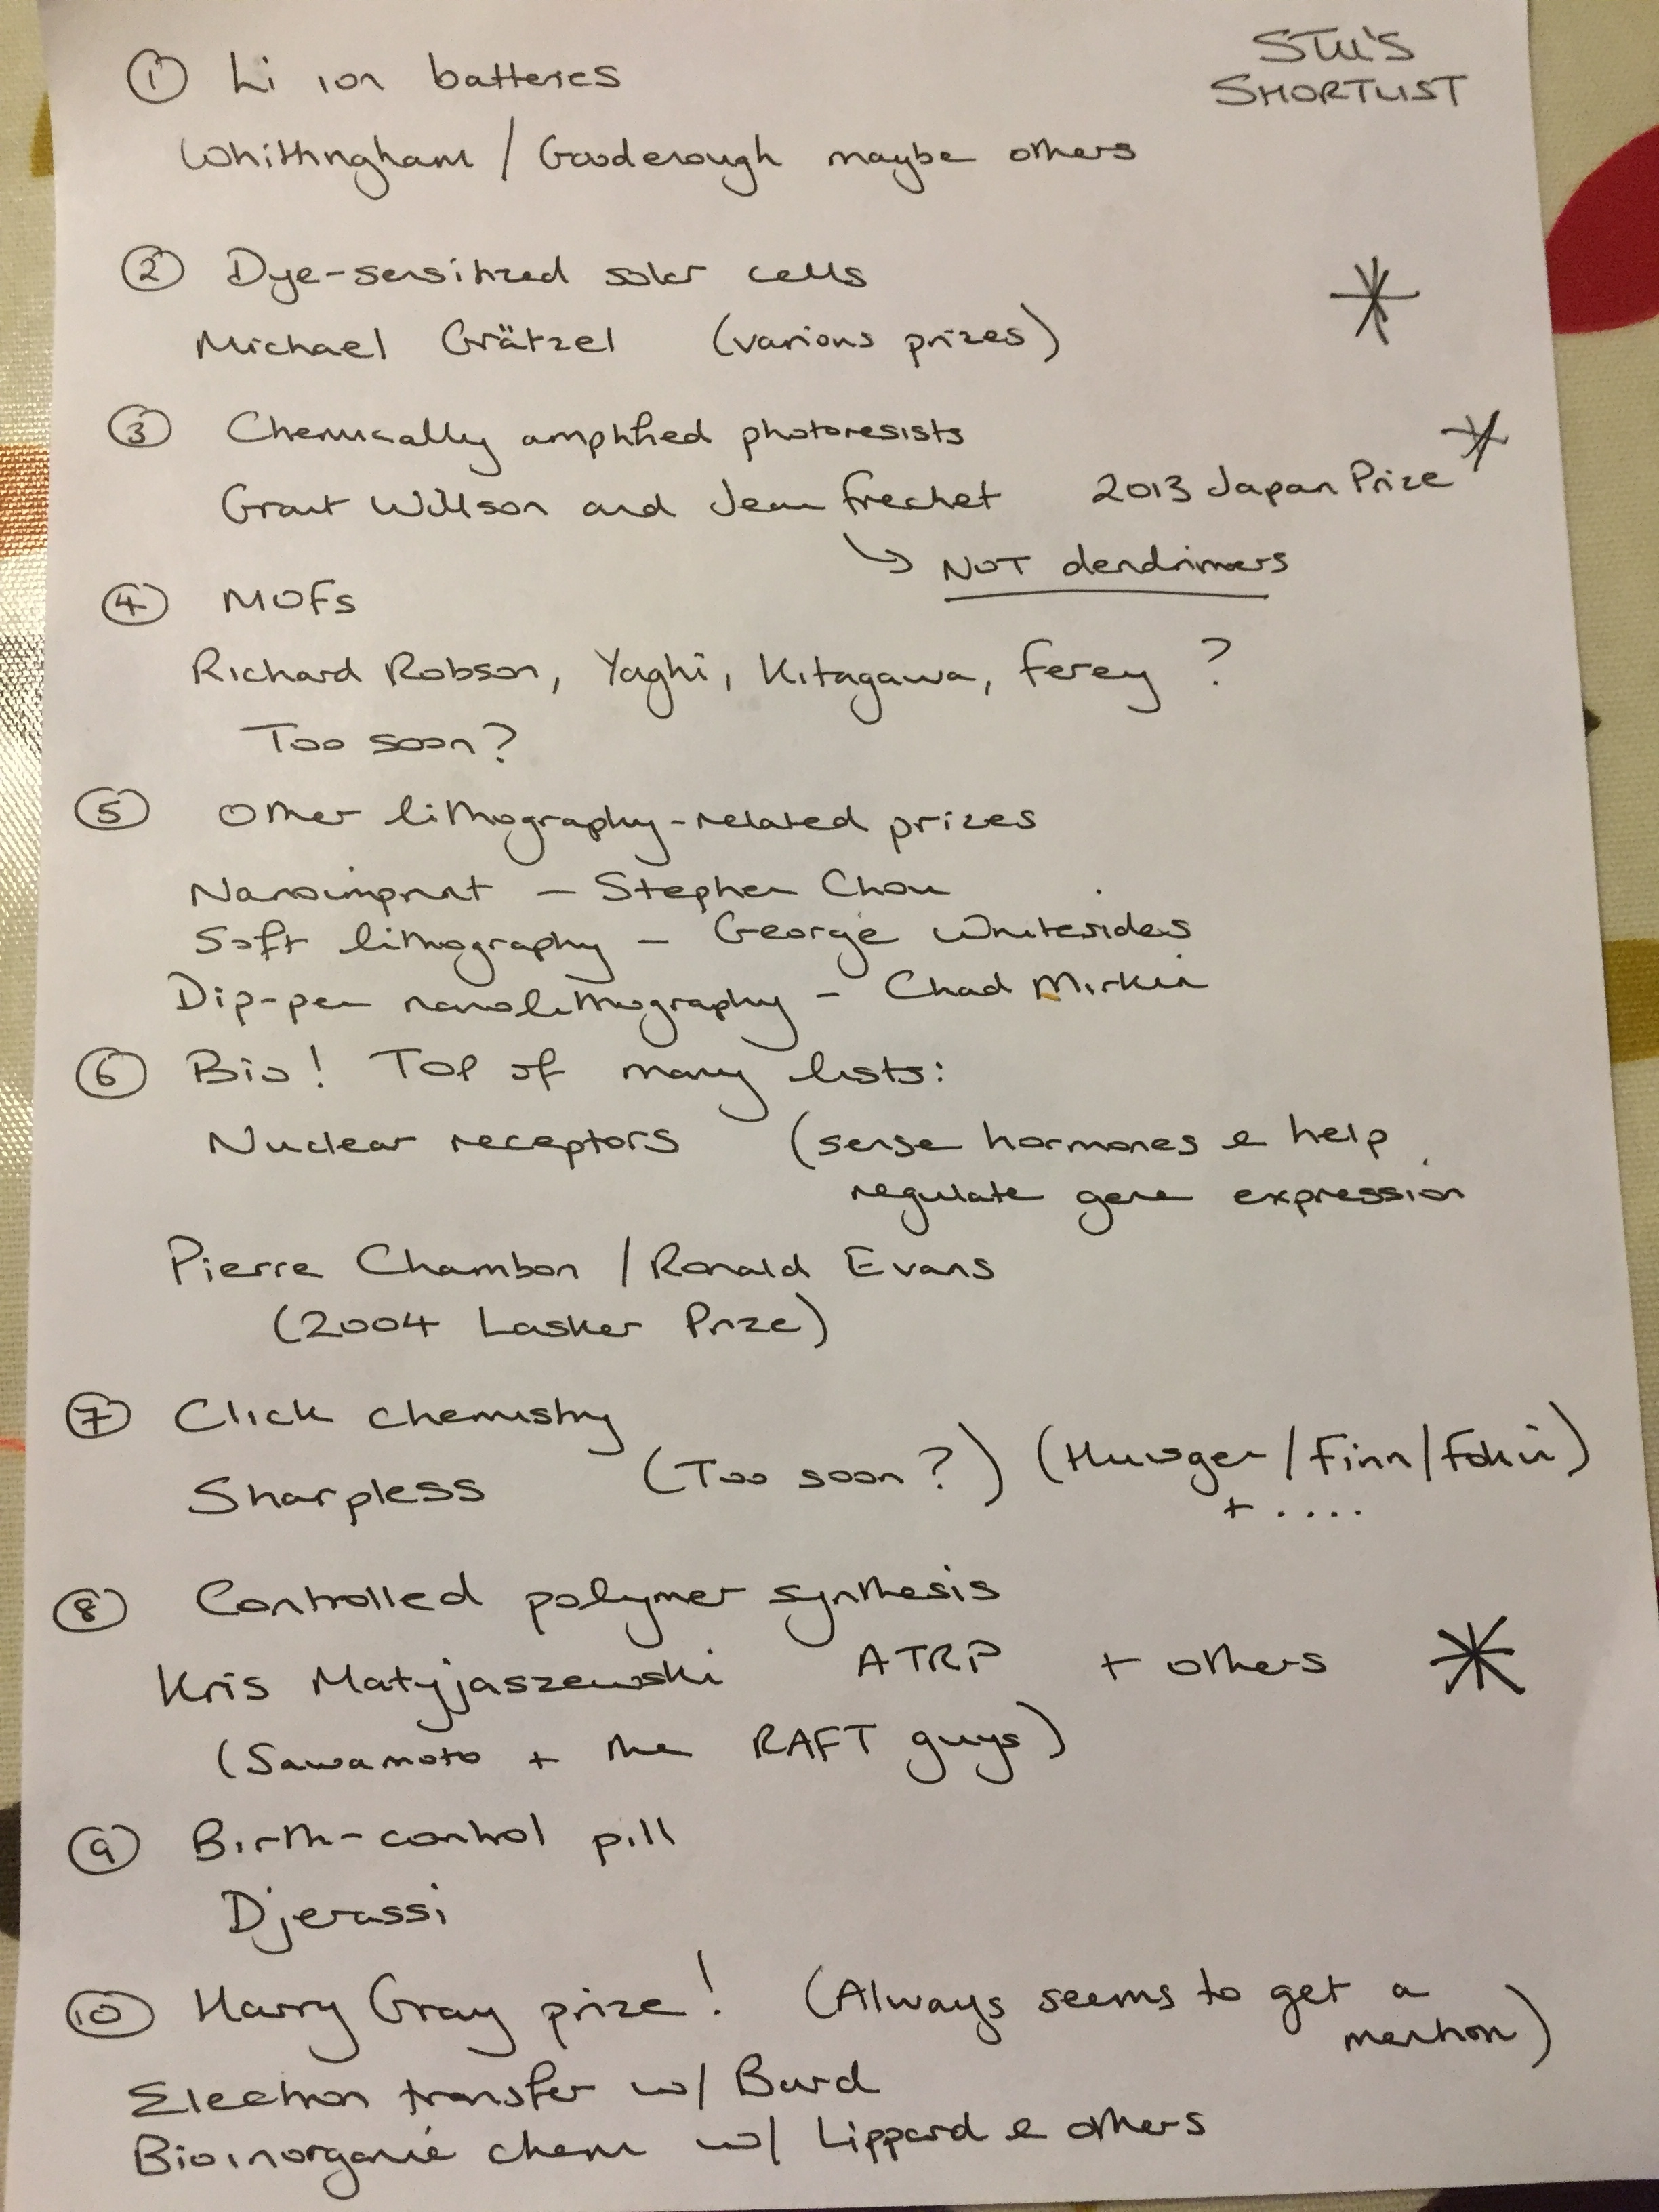 STU'S
SHORTLIST
① Li ion batteries
Whittingham / Goodenough maybe others
② Dye-sensitized solar cells
Michael Grätzel (various prizes)
③ Chemically amplified photoresists
Grant Willson and Jean Frechet 2013 Japan Prize
↳ NOT dendrimers
④ MOFs
Richard Robson, Yaghi, Kitagawa, Ferey ?
Too soon?
⑤ Other lithography-related prizes
Nanoimprint – Stephen Chou
Soft lithography – George Whitesides
Dip-pen nanolithography – Chad Mirkin
⑥ Bio! Top of many lists:
Nuclear receptors (sense hormones & help
regulate gene expression
Pierre Chambon / Ronald Evans
(2004 Lasker Prize)
⑦ Click chemistry
Sharpless (Too soon?) (Huisgen/Finn/Fokin)
+ ....
⑧ Controlled polymer synthesis
Kris Matyjaszewski ATRP + others
(Sawamoto + the RAFT guys)
⑨ Birth-control pill
Djerassi
⑩ Harry Gray prize! (Always seems to get a
mention)
Electron transfer w/ Bard
Bioinorganic chem w/ Lippard & others